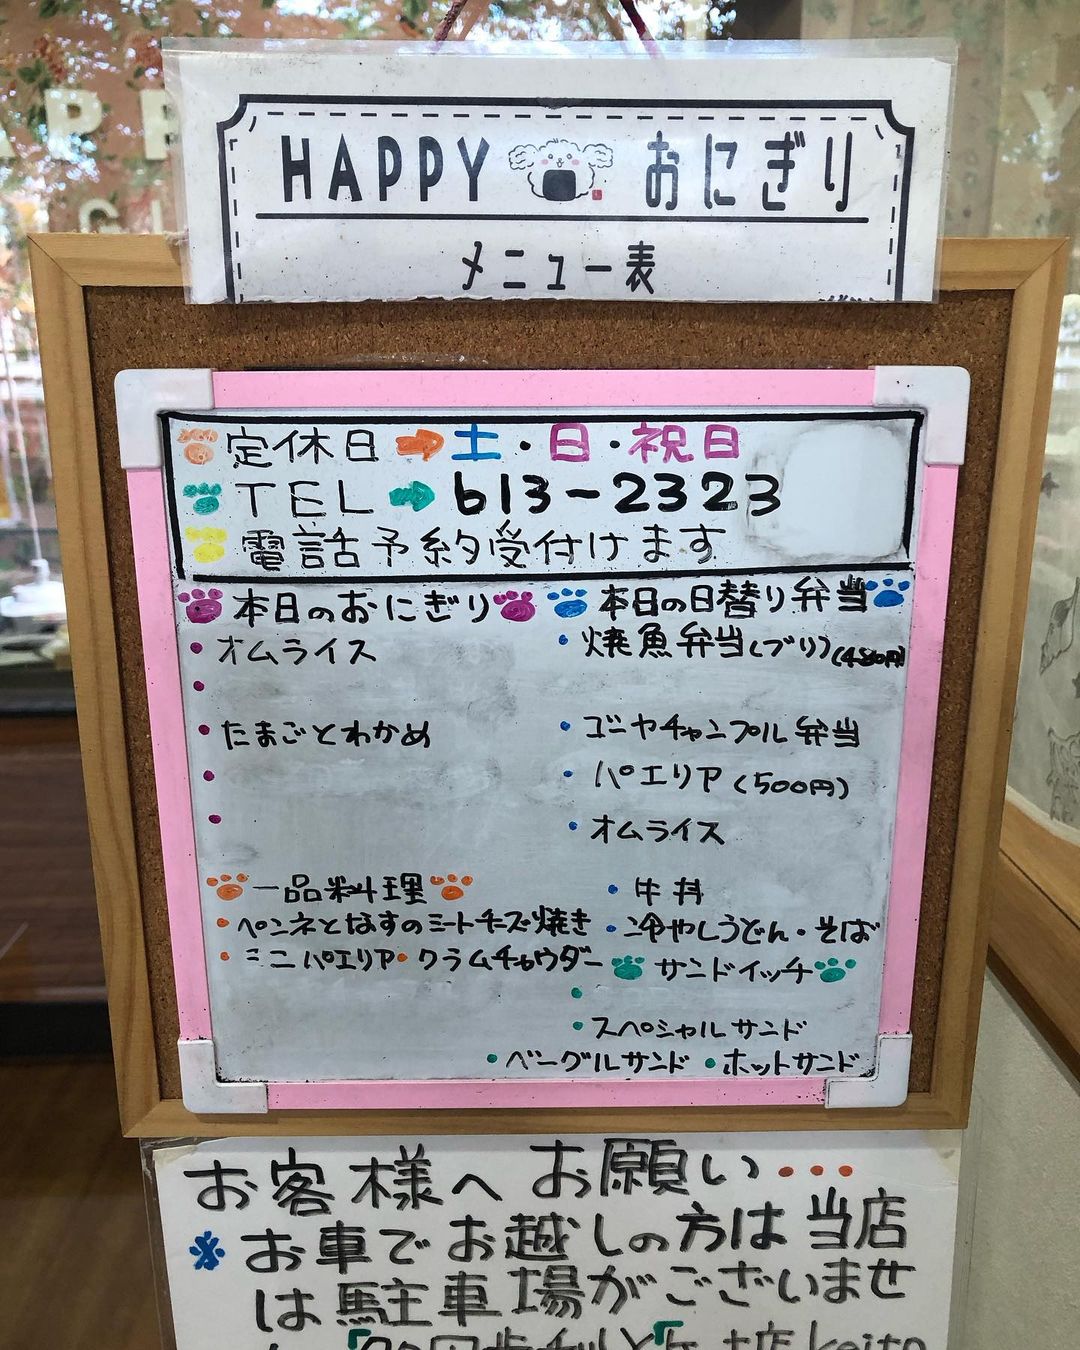 HAPPY おにぎり
メニュー表
定休日➡土・日・祝日
TEL➡613-2323
電話予約受付けます
本日のおにぎり
・オムライス
・
・たまごとわかめ
・
・
本日の日替り弁当
・焼魚弁当(ブリ)(480円)
・ゴーヤチャンプル弁当
・パエリア(500円)
・オムライス
・牛丼
・冷やしうどん・そば
一品料理
・ペンネとなすのミートチーズ焼き
・ミニパエリア・クラムチャウダー
サンドイッチ
・
・スペシャルサンド
・ベーグルサンド ・ホットサンド
お客様へお願い・・・
※お車でお越しの方は当店
は駐車場がございませ